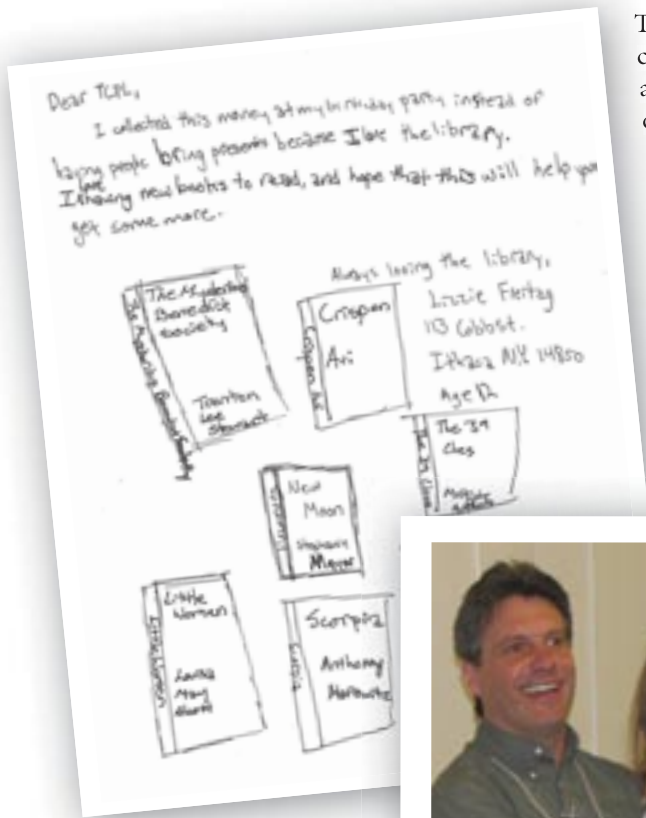 Dear TCPL,
I collected this money at my birthday party instead of
having people bring presents because I love the library.
I love having new books to read, and hope that this will help you
get some more.
Always loving the library,
Lizzie Freitag
113 Cobb St.
Ithaca NY 14850
Age 12
The Mysterious
Benedict
Society
Trenton
Lee
Stewart
The Mysterious Benedict Society
Crispen
Avi
Crispen Avi
The 39
Clues
The 39 Clues
New
Moon
Stephanie
Meyer
Little
Women
Louisa
May
Alcott
Little Women
Scorpia
Anthony
Horowitz
Scorpia